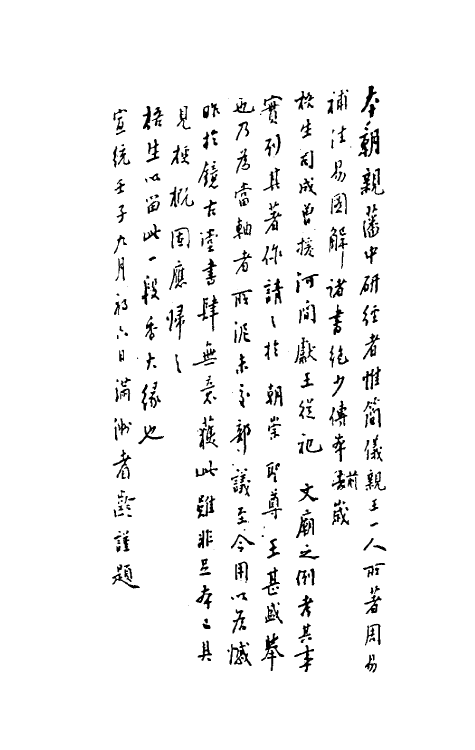 本朝親藩中研經者惟簡儀親王一人所著周易
補注易圖解諸書絕少傳本前歲
梧生司成曾援河間獻王從祀 文廟之例考其事
實列其著作請之於 朝崇聖尊王甚盛舉
也乃為當軸者所泥未交部議至今用以為憾
昨於鏡古堂書肆無意獲此雖非足本已具
見梗概固應歸之
梧生以留此一段香火緣也
宣統壬子九月初六日滿洲耆齡謹題